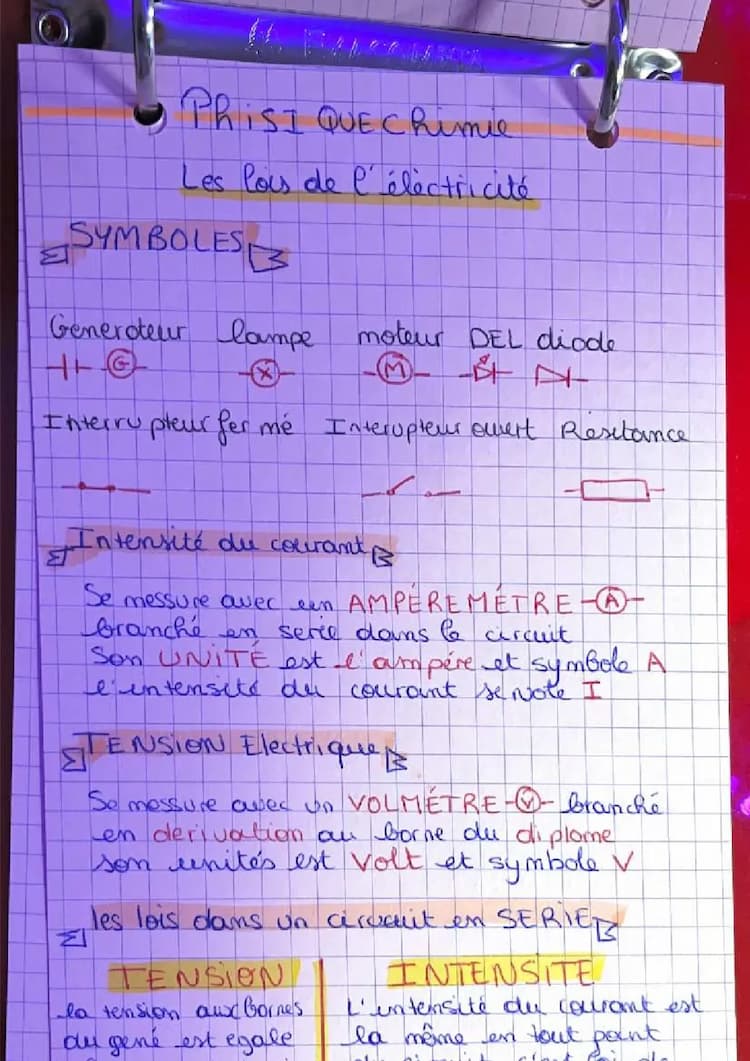 PhiSIQUE Chimie
Les lois de l'élèctricité
SYMBOLES
Generateur lampe moteur DEL diode
G X M
Interrupteur fermé Interupteur ouvert Résitance
Intensité du courant
Se messure avec un AMPÉREMÉTRE A
branché en serie dans le circuit
Son UNITÉ est l'ampére et symbole A
l'intensité du courant se note I
TENSION Electrique
Se messure avec un VOLMÉTRE V branché
en derivation au borne du diplome
son unités est Volt et symbole V
les lois dans un circuit en SERIE
TENSION INTENSITE
la tension aux bornes
du gené est egale
L'intensité du courant est
la même en tout point